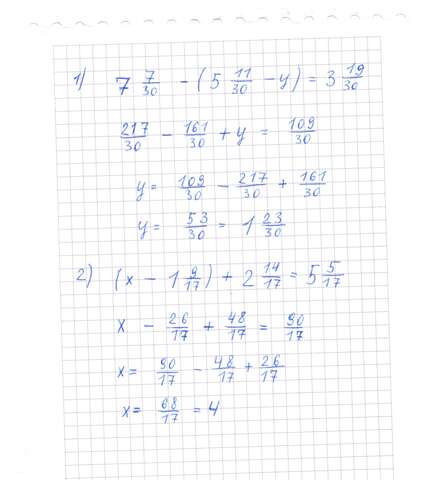 1) 7 7/30 - (5 11/30 - y) = 3 19/30
217/30 - 161/30 + y = 109/30
y = 109/30 - 217/30 + 161/30
y = 53/30 = 1 23/30
2) (x - 1 9/17) + 2 14/17 = 5 5/17
x - 26/17 + 48/17 = 90/17
x = 90/17 - 48/17 + 26/17
x = 68/17 = 4